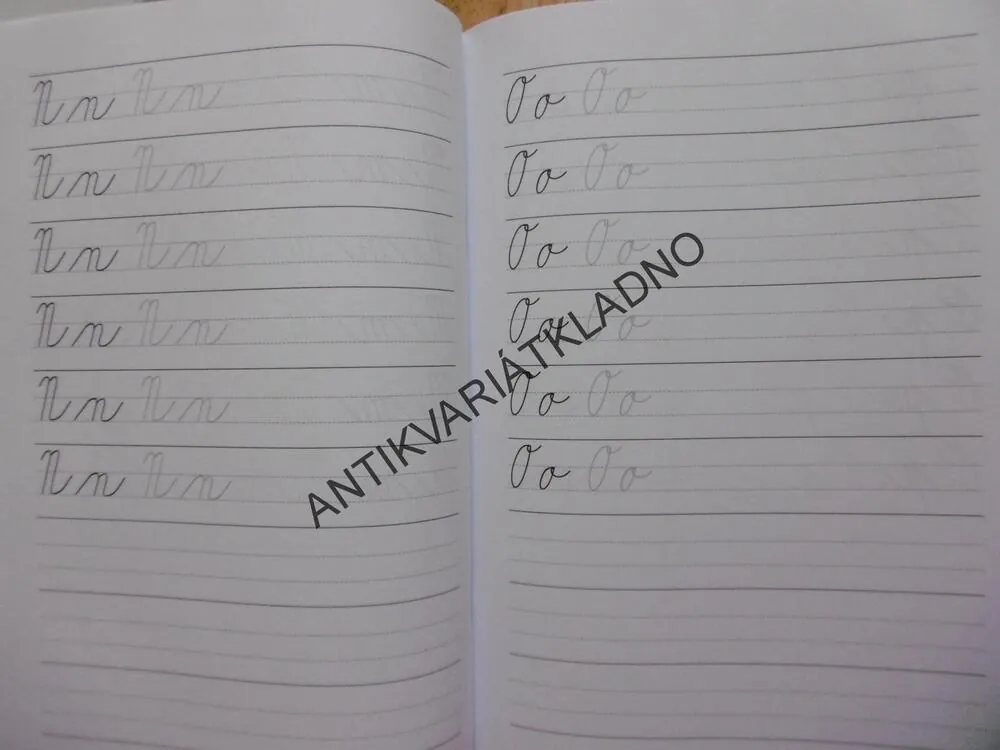 N n N n
N n N n
N n N n
N n N n
N n N n
N n N n
O o O o
O o O o
O o O o
O o O o
O o O o
O o O o
ANTIKVARIÁTKLADNO